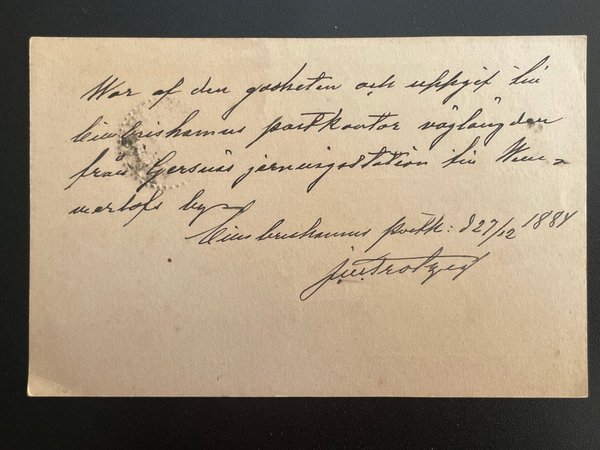 War af den godheten och uppgif till
Cimbrishamns postkontor väglängden
från Gersnäs jernvägsstation till Wem-
mertofs by
Cimbrishamns postk: d 27/12 1884